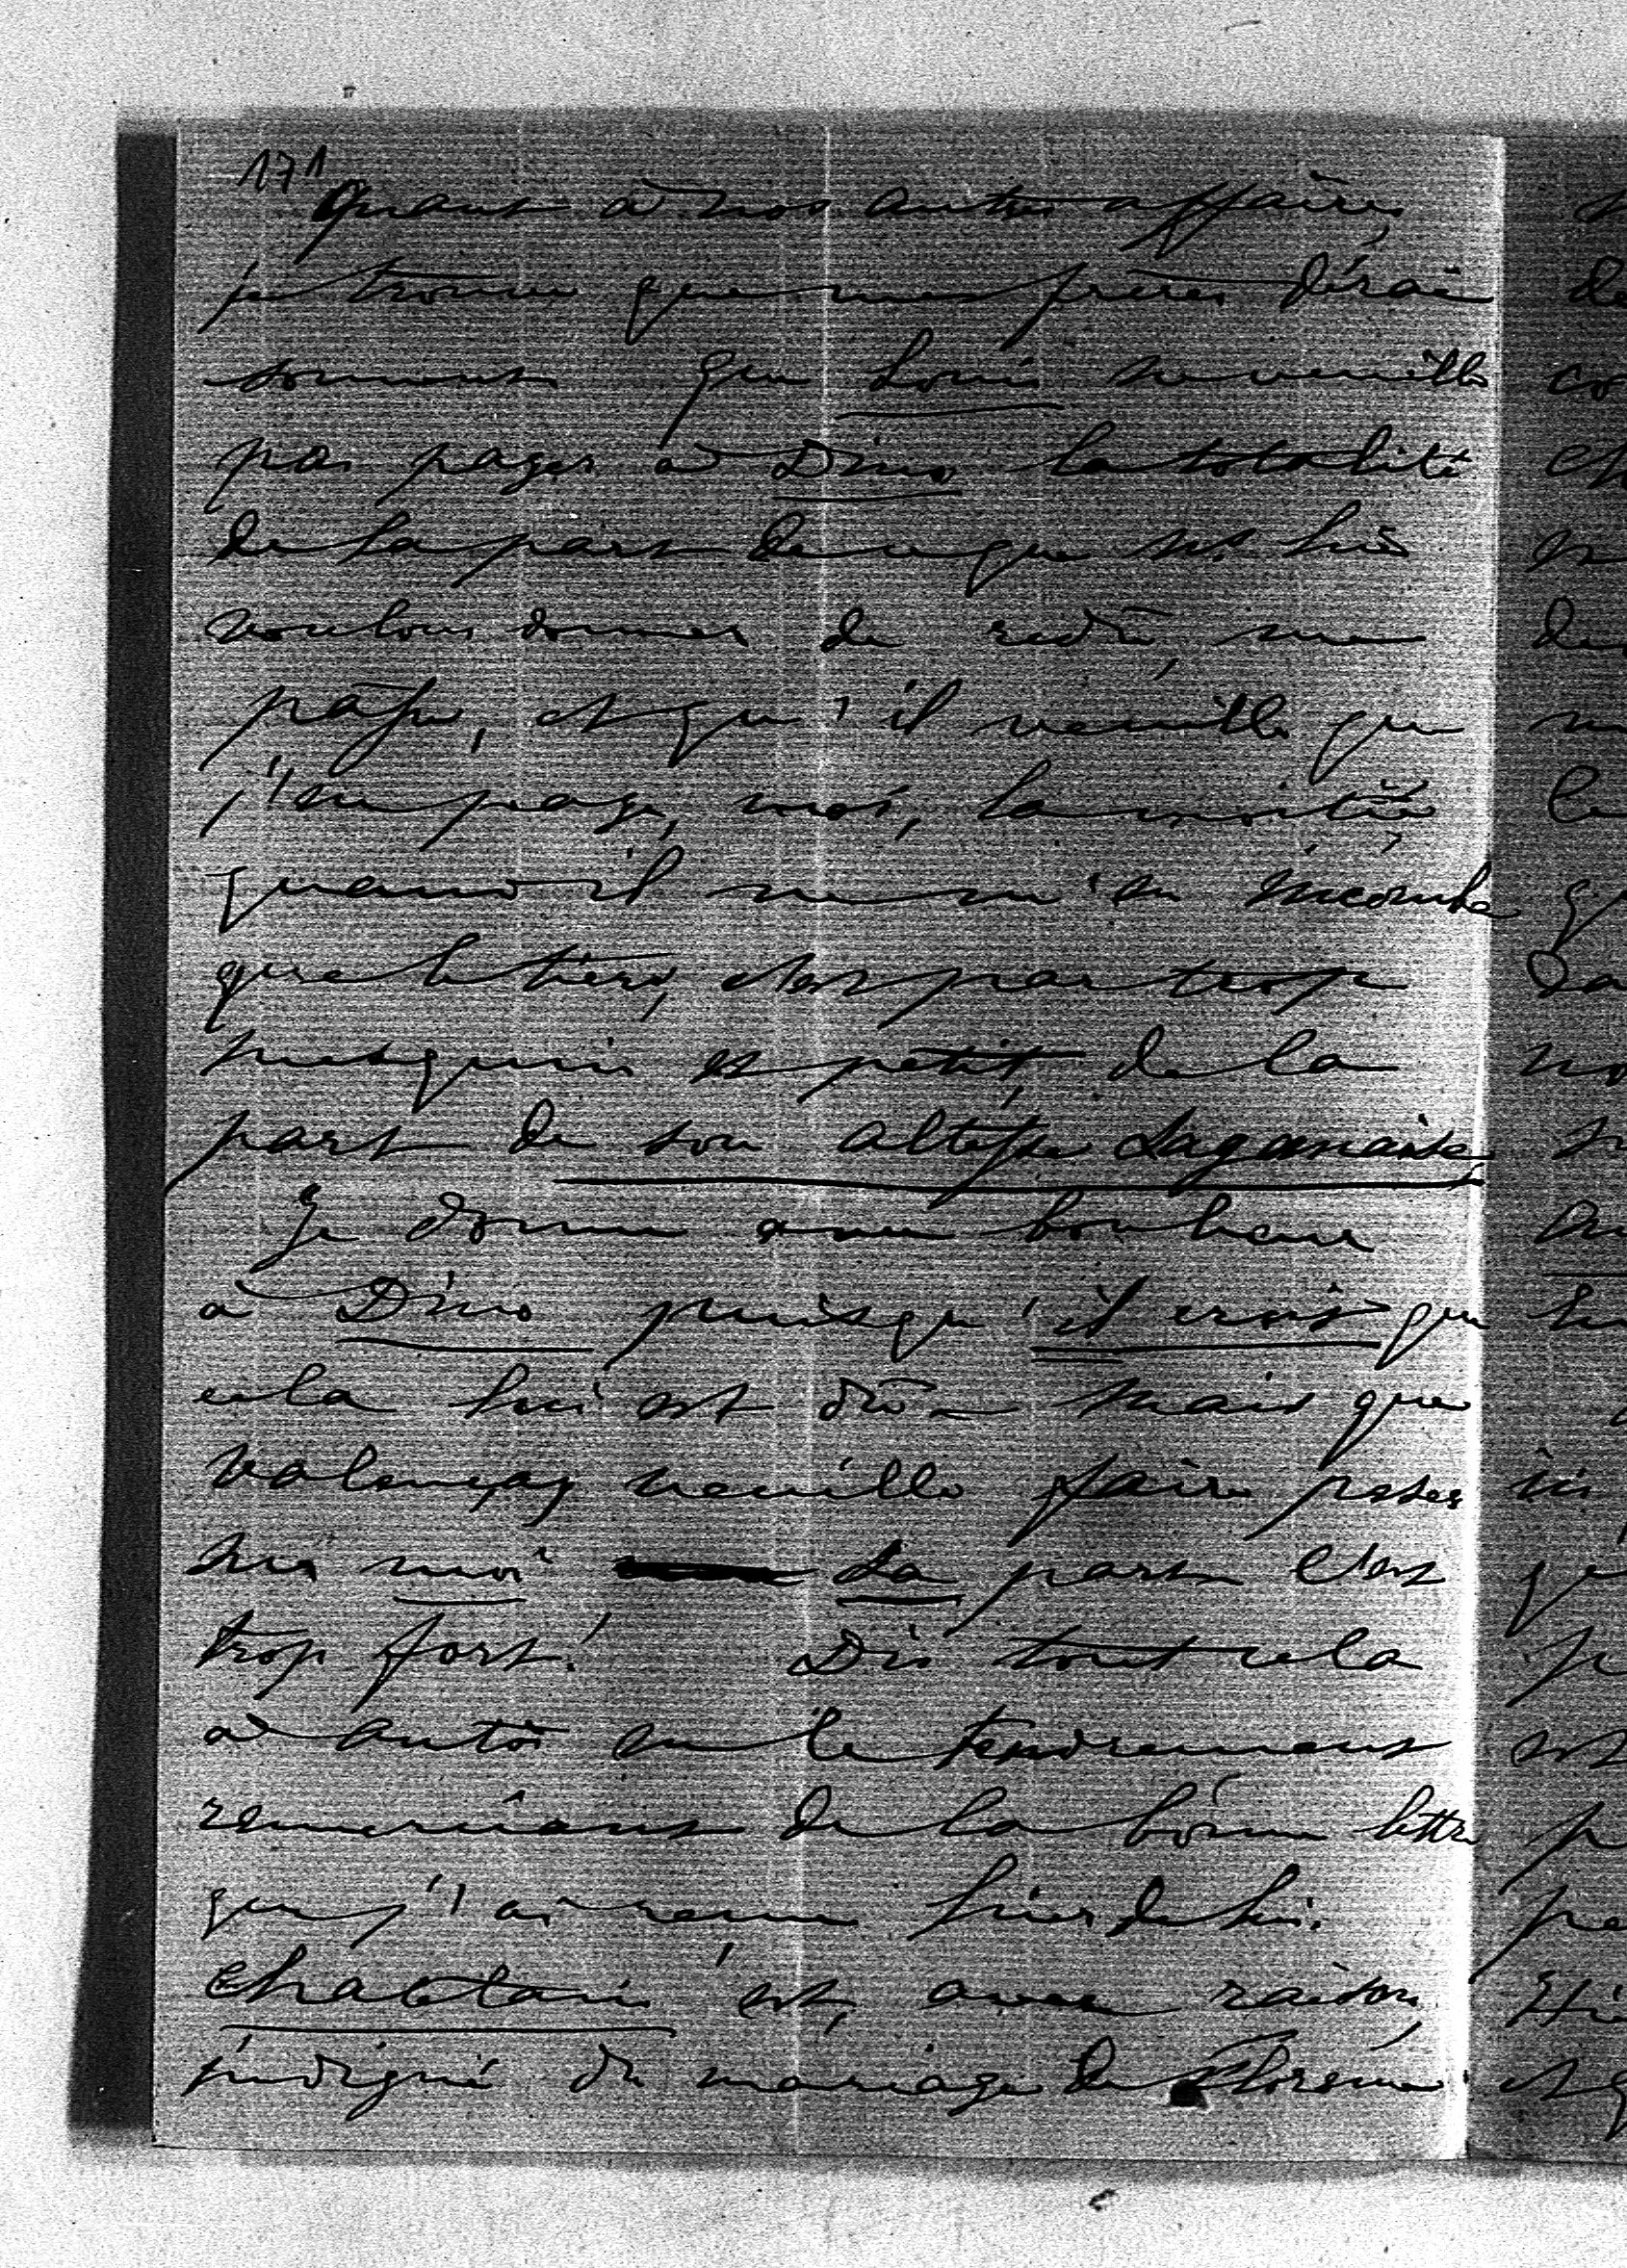 171
Quant à nos autres affaires,
je trouve que mes frères dérai
sonnent que Louis ne veuille
pas payer à Dino la totalité
de la part de ce que ns lui
voulons donner de redû, me
passe, et qu'il veuille que
j'en paye, moi, la moitié,
quand il ne m'en incombe
que le tiers, c'est par trop
mesquin et petit de la
part de son altesse Saganaise,
Je donne avec bonheur
à Dino puisqu'il croit que
cela lui est dû – mais que
Valençay veuille faire peser
sur moi Sa part c'est
trop fort! Dis tout cela
à autôr en le tendrement
remerciant de la bonne lettre
que j'ai reçue hier de lui.
est, avec raison,
indigné du mariage de